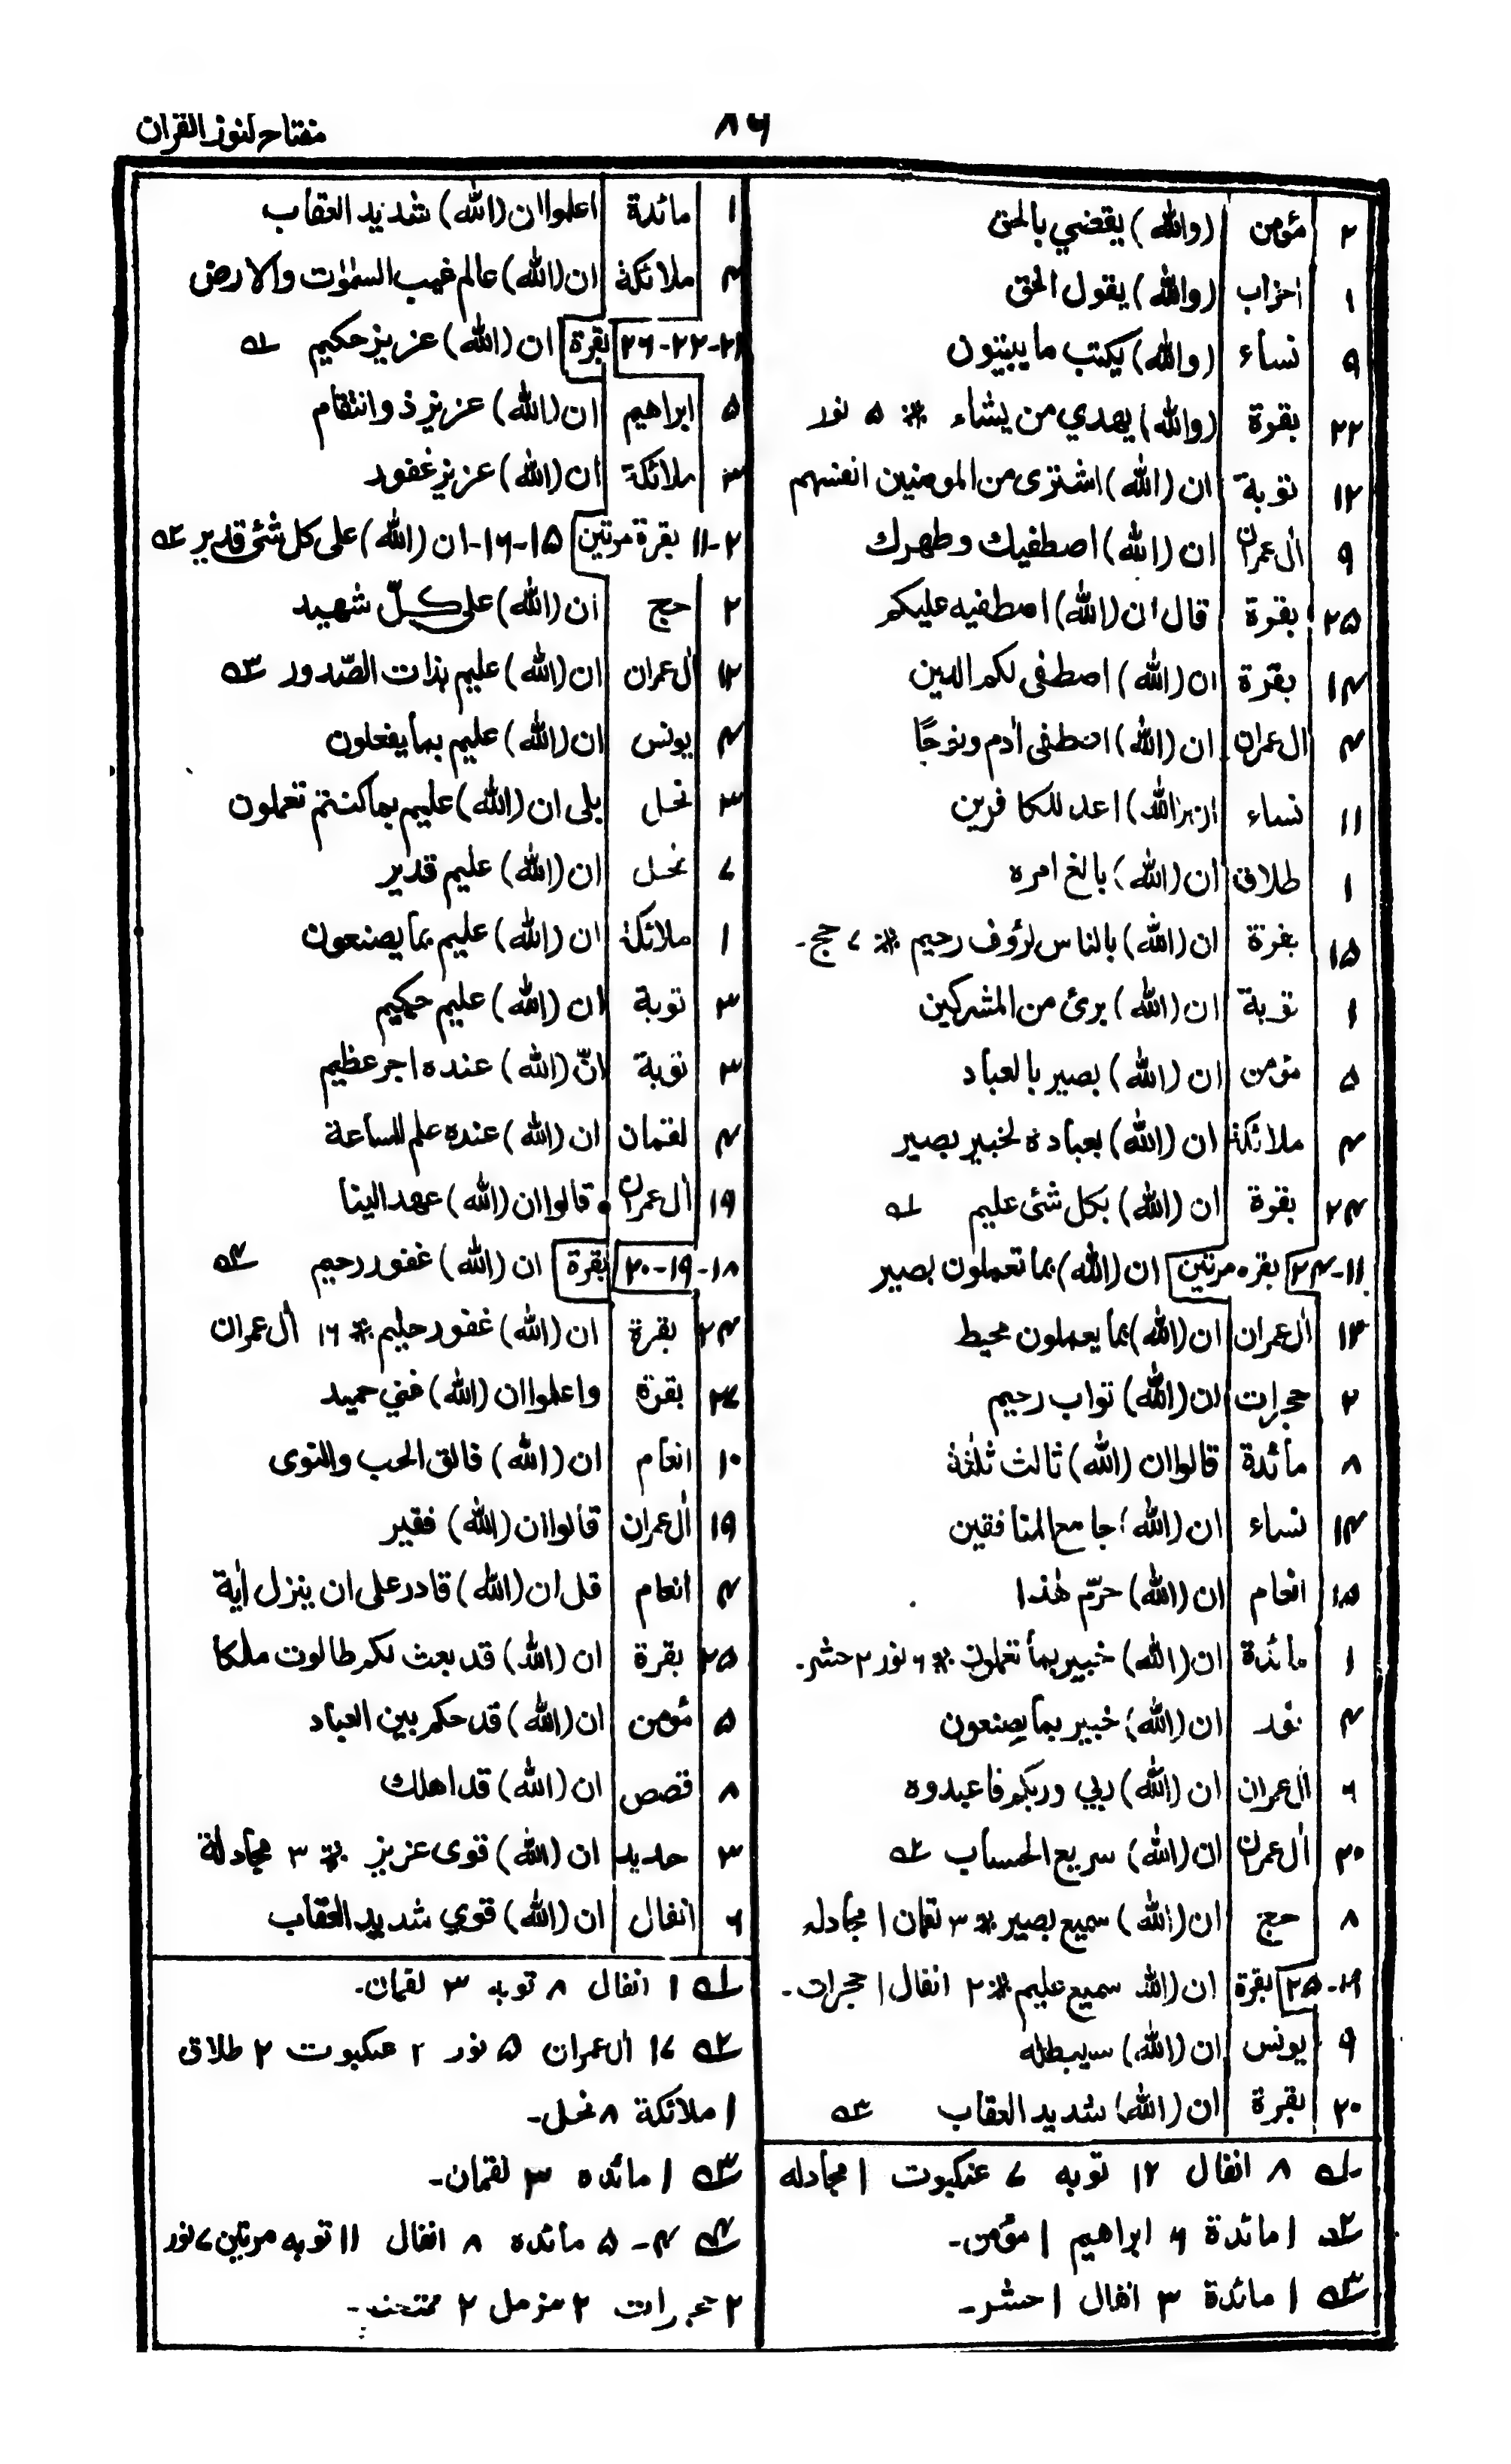 مفتاح كنوز القرآن
۸۶
۲ مؤمن (والله) يقضي بالحق
۱ احزاب (والله) يقول الحق
۹ نساء (والله) يكتب ما يبيتون
۲۲ بقرة (والله) يهدي من يشاء ۞ ۵ نور
۱۲ توبة ان (الله) اشترى من المومنين انفسهم
۹ اٰل عمران ان (الله) اصطفيك وطهرك
۲۵ بقرة قال ان (الله) اصطفيه عليكم
۱۴ بقرة ان (الله) اصطفى لكم الدين
۴ اٰل عمران ان (الله) اصطفى اٰدم ونوحًا
۱۱ نساء ان (الله) اعد للكافرين
۱ طلاق ان (الله) بالغ امره
۱۵ بقرة ان (الله) بالناس لرؤف رحيم ۞ ۷ حج-
۱ توبة ان (الله) برئ من المشركين
۵ مؤمن ان (الله) بصير بالعباد
۴ ملائكة ان (الله) بعباده لخبير بصير
۲۴ بقرة ان (الله) بكل شئ عليم ۱ے
۱۱-۲۴ بقره مرتين ان (الله) بما تعملون بصير
۱۲ اٰل عمران ان (الله) بما يعملون محيط
۲ حجرات ان (الله) تواب رحيم
۸ مائدة قالوا ان (الله) ثالث ثلٰثة
۱۴ نساء ان (الله) جامع المنافقين
۱۵ انعام ان (الله) حرّم هٰذا
۱ مائدة ان (الله) خبير بما تعملون ۞ ۶ نور ۲ حشر-
۴ نور ان (الله) خبير بما يصنعون
۶ اٰل عمران ان (الله) ربي وربكم فاعبدوه
۲۰ اٰل عمران ان (الله) سريع الحساب ۲ے
۸ حج ان (الله) سميع بصير ۞ ۳ لقمان ۱ مجادله
۱۹-۲۵ بقرة ان (الله) سميع عليم ۞ ۲ انفال ۱ حجرات-
۹ يونس ان (الله) سيبطله
۲۰ بقرة ان (الله) شديد العقاب ۳ے
۱ے ۸ انفال ۱۲ توبه ۷ عنكبوت ۱ مجادله
۲ے ۱ مائدة ۶ ابراهيم ۱ مؤمن-
۳ے ۱ مائدة ۳ انفال ۱ حشر-
۱ مائدة اعلموا ان (الله) شديد العقاب
۴ ملائكة ان (الله) عالم غيب السمٰوٰت والارض
۲۱-۲۲-۲۶ بقرة ان (الله) عزيز حكيم ۱ے
۵ ابراهيم ان (الله) عزيز ذو انتقام
۳ ملائكة ان (الله) عزيز غفور
۲-۱۱ بقرة مرتين ۱۵-۱۶-ان (الله) على كل شئ قدير ۲ے
۲ حج ان (الله) على كلّ شهيد
۱۲ اٰل عمران ان (الله) عليم بذات الصّدور ۳ے
۴ يونس ان (الله) عليم بما يفعلون
۳ نحل بلى ان (الله) عليم بما كنتم تعملون
۷ نحل ان (الله) عليم قدير
۱ ملائكة ان (الله) عليم بما يصنعون
۳ توبة ان (الله) عليم حكيم
۳ توبة انّ (الله) عنده اجر عظيم
۴ لقمان ان (الله) عنده علم الساعة
۱۹ اٰل عمران قالوا ان (الله) عهد الينا
۱۸-۱۹-۲۰ بقرة ان (الله) غفور رحيم ۴ے
۲۴ بقرة ان (الله) غفور حليم ۞ ۱۶ اٰل عمران
۲۷ بقرة واعلموا ان (الله) غني حميد
۱۰ انعام ان (الله) فالق الحب والنوى
۱۹ اٰل عمران قالوا ان (الله) فقير
۴ انعام قل ان (الله) قادر على ان ينزل اٰية
۲۵ بقرة ان (الله) قد بعث لكم طالوت ملكا
۵ مؤمن ان (الله) قد حكم بين العباد
۸ قصص ان (الله) قد اهلك
۳ حديد ان (الله) قوى عزيز ۞ ۳ مجادلة
۶ انفال ان (الله) قوي شديد العقاب
۱ے ۱ انفال ۸ توبه ۳ لقمان-
۲ے ۱۷ اٰل عمران ۵ نور ۲ عنكبوت ۲ طلاق
۱ ملائكة ۸ نحل-
۳ے ۱ مائده ۳ لقمان-
۴ے ۴-۵ مائده ۸ انفال ۱۱ توبه مرتين ۷ نور
۲ حجرات ۲ مزمل ۲ ممتحنه-